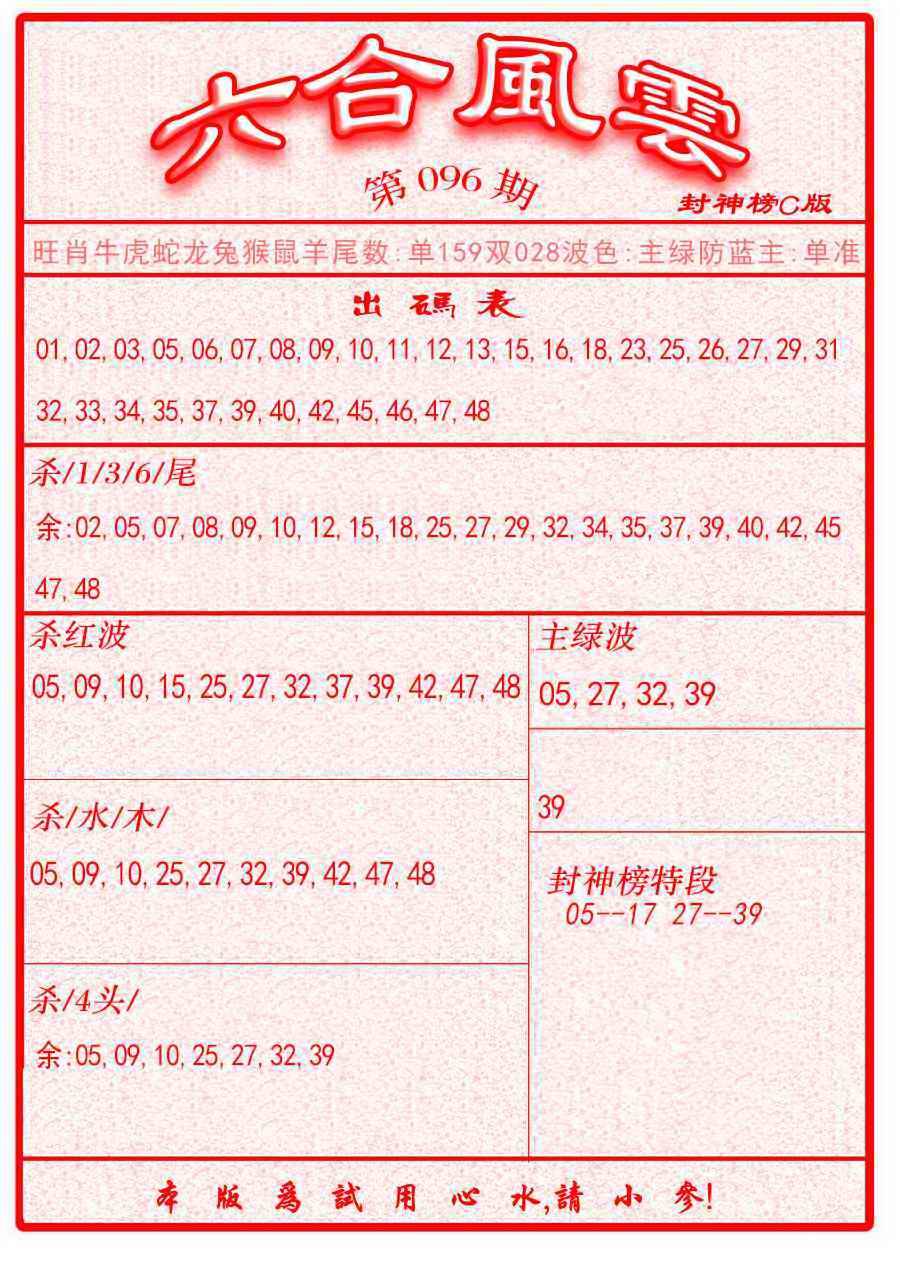 六合風雲
第096期
封神榜C版
旺肖牛虎蛇龙兔猴鼠羊尾数:单159双028波色:主绿防蓝主:单准
出碼表
01,02,03,05,06,07,08,09,10,11,12,13,15,16,18,23,25,26,27,29,31
32,33,34,35,37,39,40,42,45,46,47,48
杀/1/3/6/尾
余:02,05,07,08,09,10,12,15,18,25,27,29,32,34,35,37,39,40,42,45
47,48
杀红波
05,09,10,15,25,27,32,37,39,42,47,48
主绿波
05,27,32,39
39
杀/水/木/
05,09,10,25,27,32,39,42,47,48
封神榜特段
05--17 27--39
杀/4头/
余:05,09,10,25,27,32,39
本版爲試用心水,請小參!